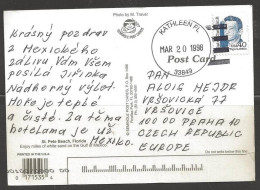 Photo by M. Travel
Krásný pozdrav
z Mexického
zálivu Vám všem
posílá Jiřinka
Nádherný výlet
Moře je teplé
a čisté. Za těma
hotelama je už Mexiko.
KATHLEEN FL
MAR 20 1998
33849
Post Card
40
PAN
ALOIS HEJDA
VRŠOVICKÁ 77
VRŠOVICE
100 00 PRAHA 10
CZECH REPUBLIC
EUROPE
PRINTED IN THE USA
St. Pete Beach, Florida
Enjoy miles of white sand on the Gulf of Mexico.